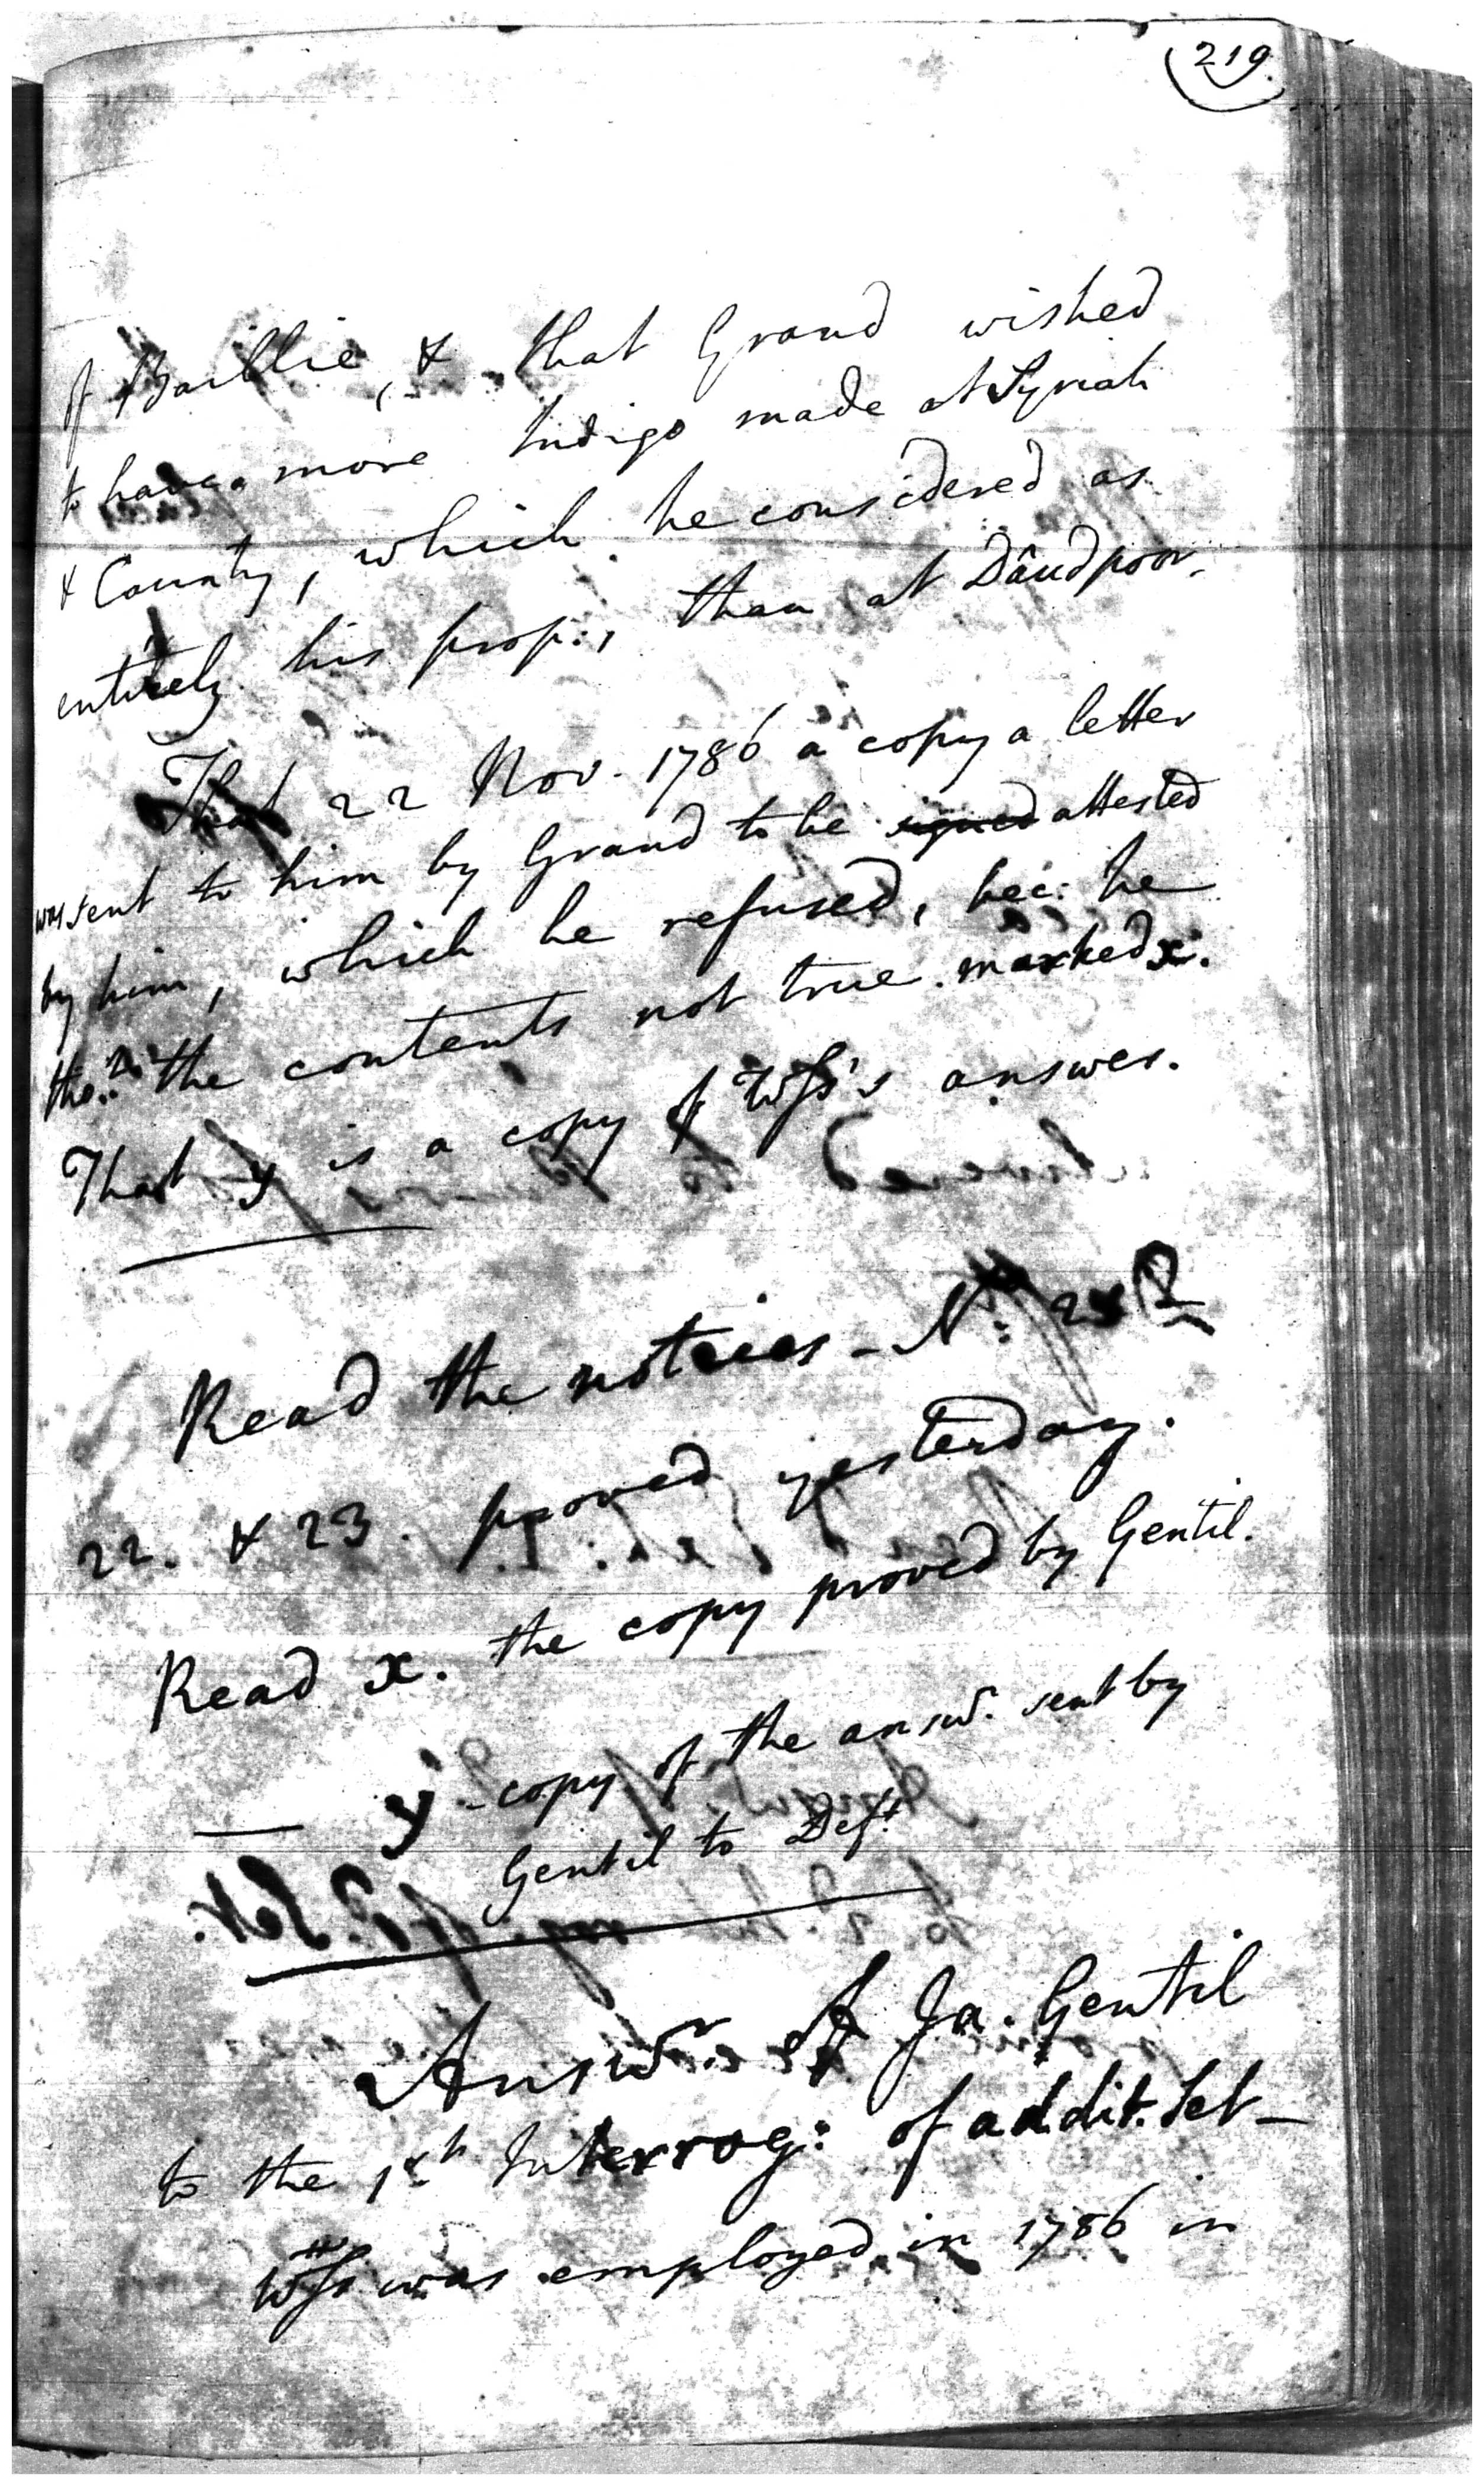 219.
of Baillie, & that Grand wished
to have a more Indigo made at Syriah
& County, which he considered as
entirely his prop:, than at Dâudpoor.
That 22 Nov. 1786 a copy a letter
was sent to him by Grand to be signed attested
by him, which he refused, bec: he
tho.t the contents not true. marked x.
That y is a copy of Wss's answer.
Read the notices - No:
22. & 23. proved yesterday.
Read x. the copy proved by Gentil.
— y - copy of the answr. sent by
Gentil to Deft.
Answr. of Ja. Gentil
to the 1st Interrog: of addit. Set -
Wss was employed in 1786 in